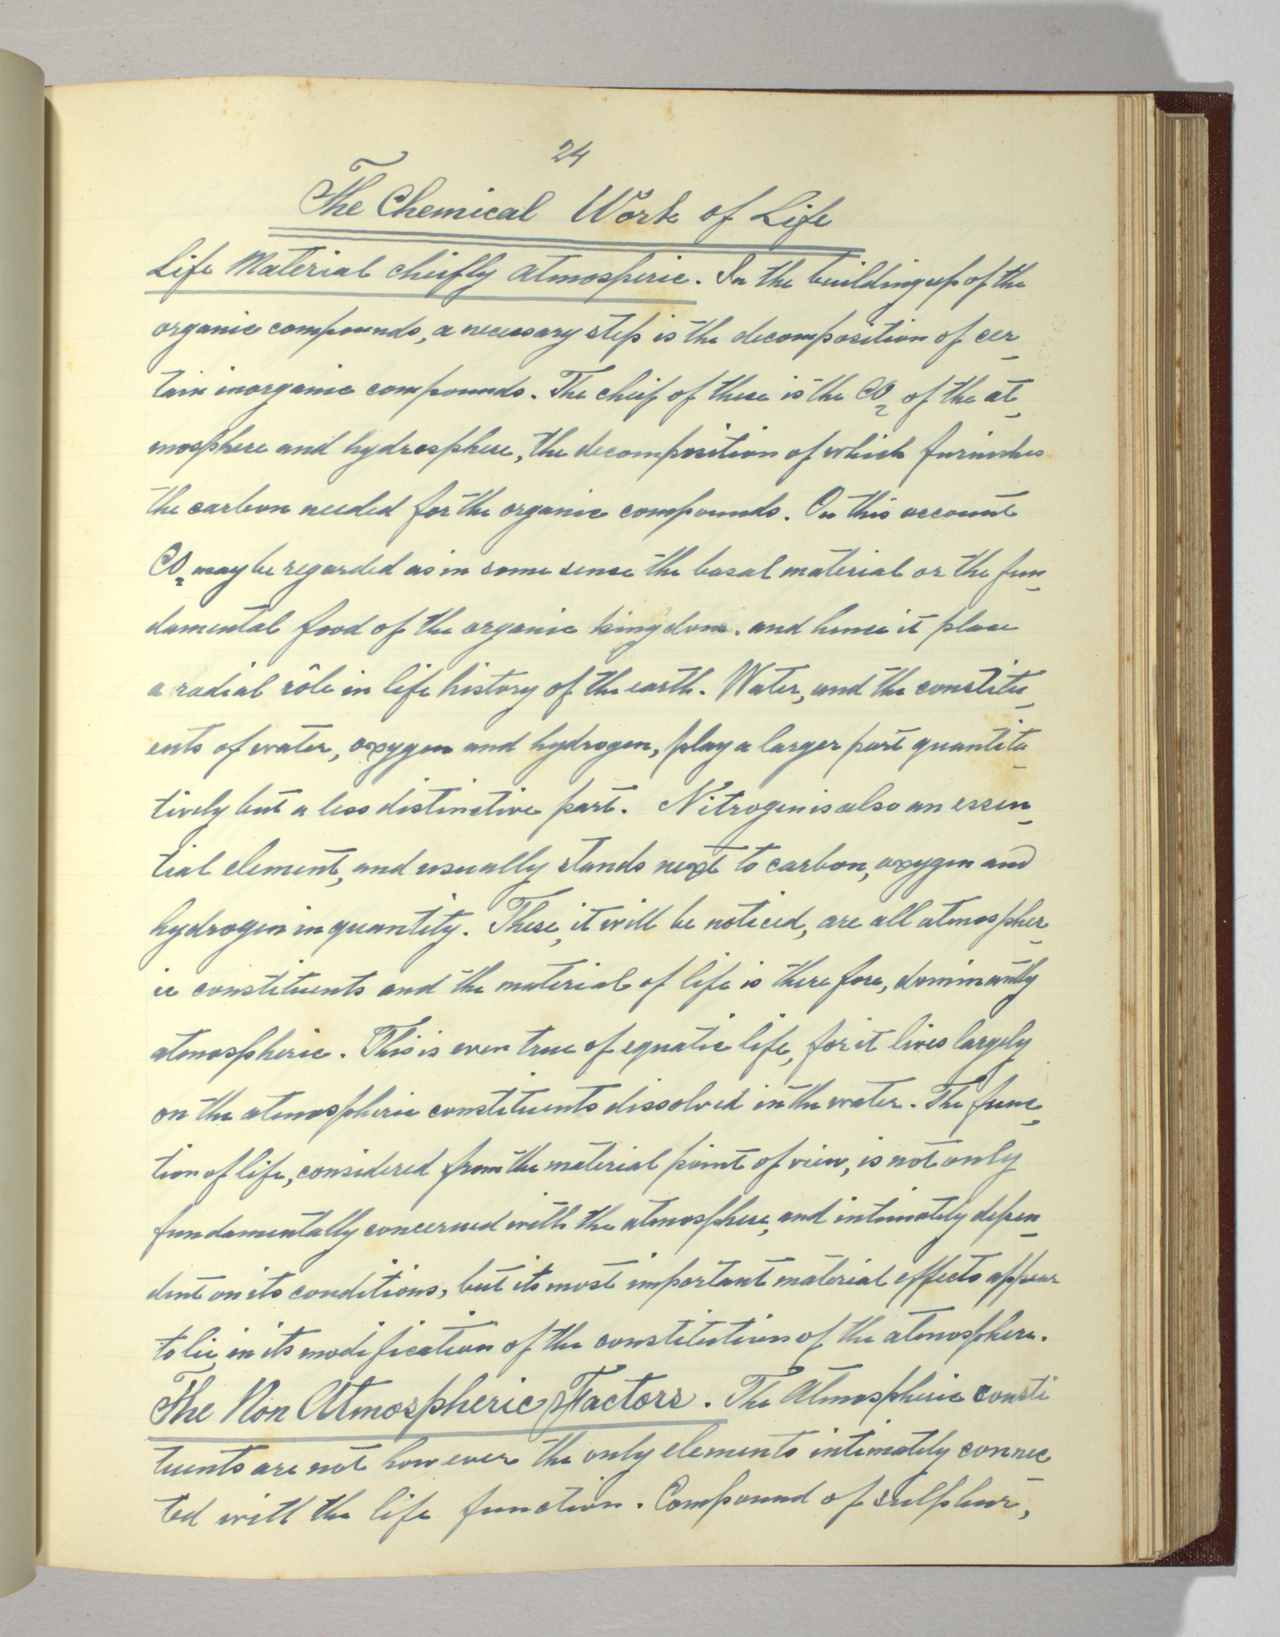 24
The Chemical Work of Life
Life Material cheifly atmosperic. In the building up of the
organic compounds, a necessary step is the decomposition of cer-
tain inorganic compounds. The cheif of these is the CO₂ of the at-
mosphere and hydrosphere, the decomposition of which furnishes
the carbon needed for the organic compounds. On this account
CO₂ may be regarded as in some sense the basal material or the fun-
damental food of the organic kingdom. and hence it place
a radial rôle in life history of the earth. Water, and the constitu-
ents of water, oxygen and hydrogen, play a larger part quantita-
tively but a less distinctive part. Nitrogen is also an essen-
tial element, and usually stands next to carbon, oxygen and
hydrogen in quantity. These, it will be noticed, are all atmospher-
ic constituents and the material of life is therefore, dominantly
atmospheric. This is even true of equatic life, for it lives largely
on the atmospheric constituents dissolved in the water. The func-
tion of life, considered from the material point of view, is not only
fundamentally concerned with the atmosphere, and intimately depen-
dent on its conditions, but its most important material effects appear
to lie in its modification of the constitution of the atmosphere.
The Non Atmospheric Factors. The Atmospheric consti
tuents are not however the only elements intimately connec-
ted with the life function. Compound of sulphur,